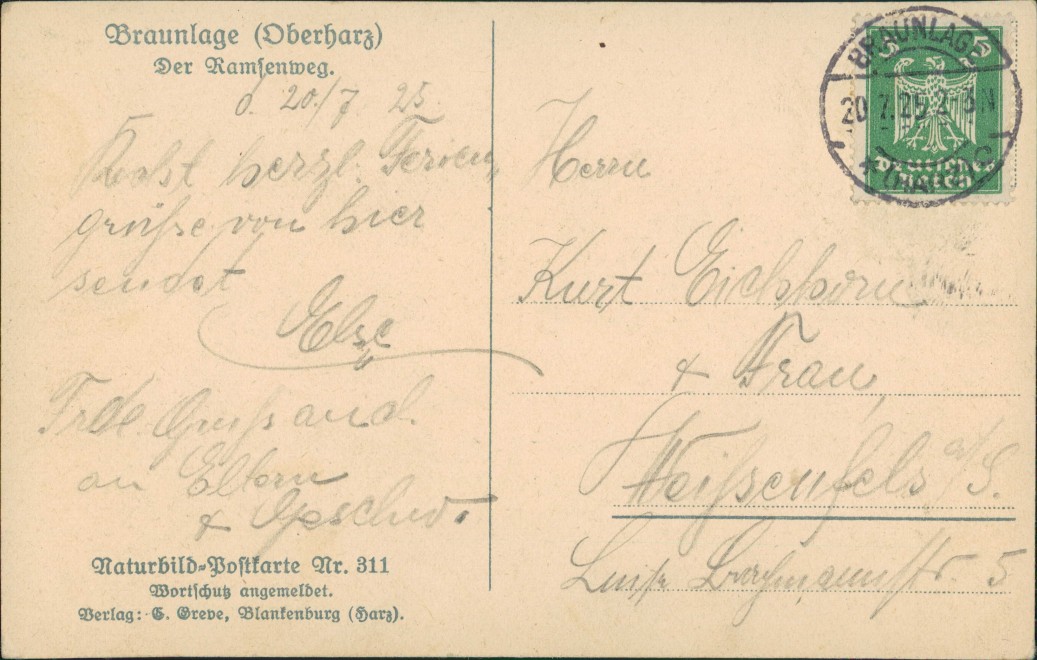 Braunlage (Oberharz)
Der Ramsenweg.
d. 20./7 25.
Recht herzl. Ferien„
grüße von hier
sendet
Else
Frdl. Gruß auch
an Eltern
& Geschw.
Naturbild-Postkarte Nr. 311
Wortschutz angemeldet.
Verlag: E. Greve, Blankenburg (Harz).
BRAUNLAGE
20.7.25.2-3N
(HARZ)
5 5
DEUTSCHES
REICH
Herrn
Kurt Eichhorn
& Frau,
Weißenfels a/S.
Luise Brachmannstr. 5